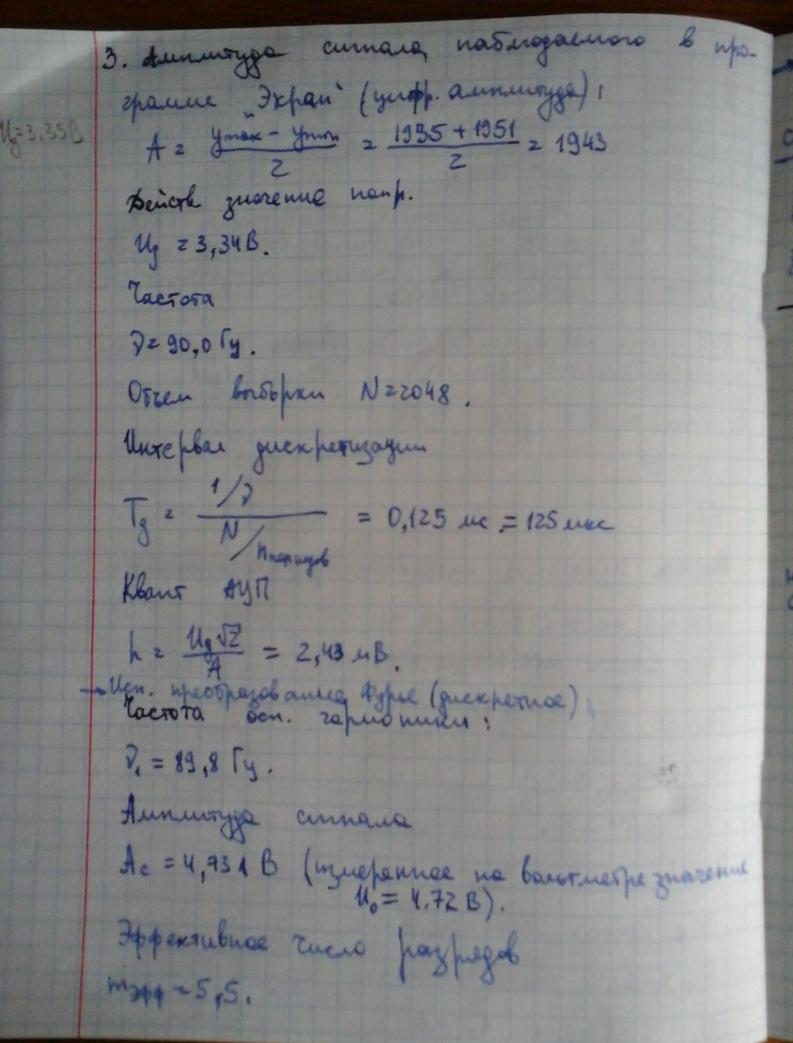 3. Амплитуда сигнала, наблюдаемого в про-
грамме "Экран" (цифр. амплитуда):
U₀=3.35В
A = (yмах - yмин)/2 = (1935 + 1951)/2 = 1943
Действ значение напр.
Uд = 3,34 В.
Частота
ν = 90,0 Гц.
Объем выборки N=2048.
Интервал дискретизации
Tд = (1/ν)/(N/nпериодов) = 0,125 мс = 125 мкс
Квант АЦП
h = Uд√2/A = 2,43 мВ.
→ Исп. преобразование Фурье (дискретное):
Частота осн. гармоники:
ν₁ = 89,8 Гц.
Амплитуда сигнала
Aс = 4,731 В (измеренное на вольтметре значение
U₀ = 4.72 В).
Эффективное число разрядов
mэфф = 5,5.